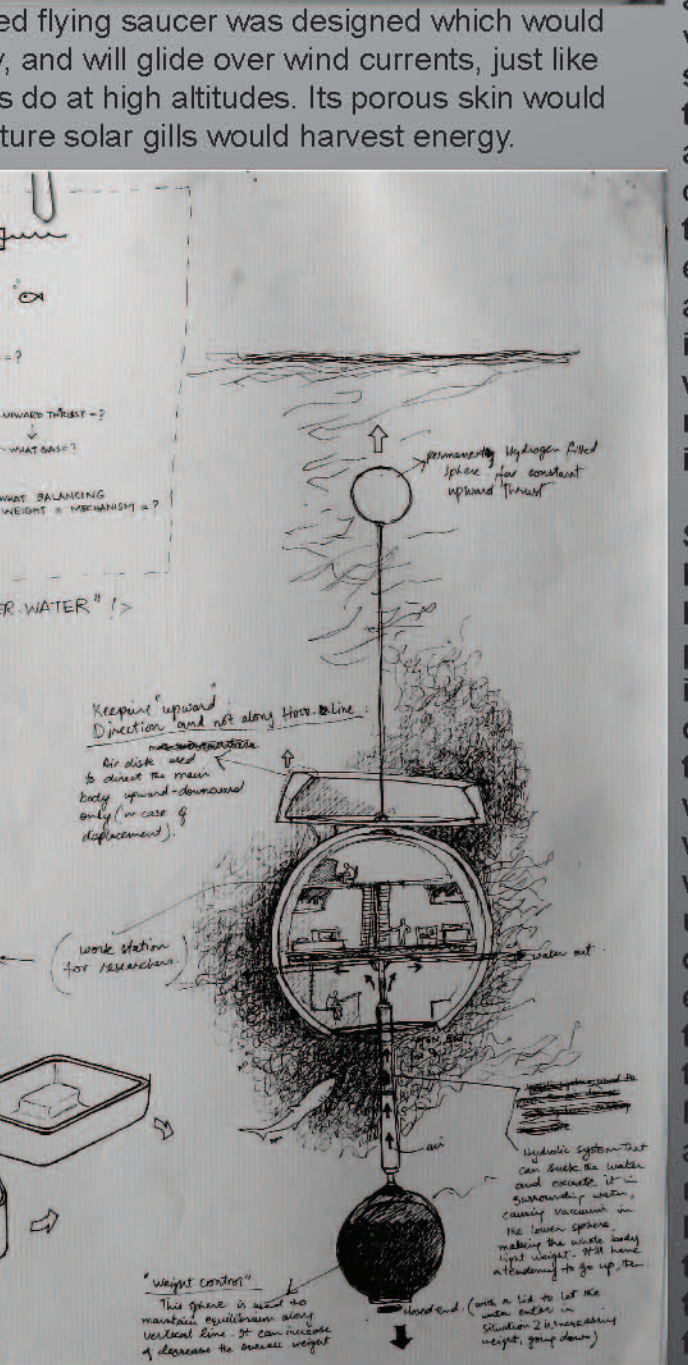 ed flying saucer was designed which would
y, and will glide over wind currents, just like
s do at high altitudes. Its porous skin would
ture solar gills would harvest energy.
= ?
UPWARD THRUST = ?
WHAT GAS = ?
WHAT BALANCING
WEIGHT MECHANISM = ?
ER WATER" !>
permanently Hydrogen filled
sphere for constant
upward Thrust
Keeping "upward"
Direction and not along Hor. Line.
Air disk used
to direct the main
body upward-downward
only (in case of
displacement).
(work station
for researchers)
water out
air
Hydrolic system that
can suck the water
and excrete it in
surrounding water,
causing vaccum in
the lower sphere
making the whole body
light weight. It'll have
a tendency to go up, then
"Weight control"
This sphere is used to
maintain equilibrium along
vertical line. It can increase
or decrease the overall weight
closed end. (with a lid to let the
water enter in
situation 2 increasing
weight, going down)